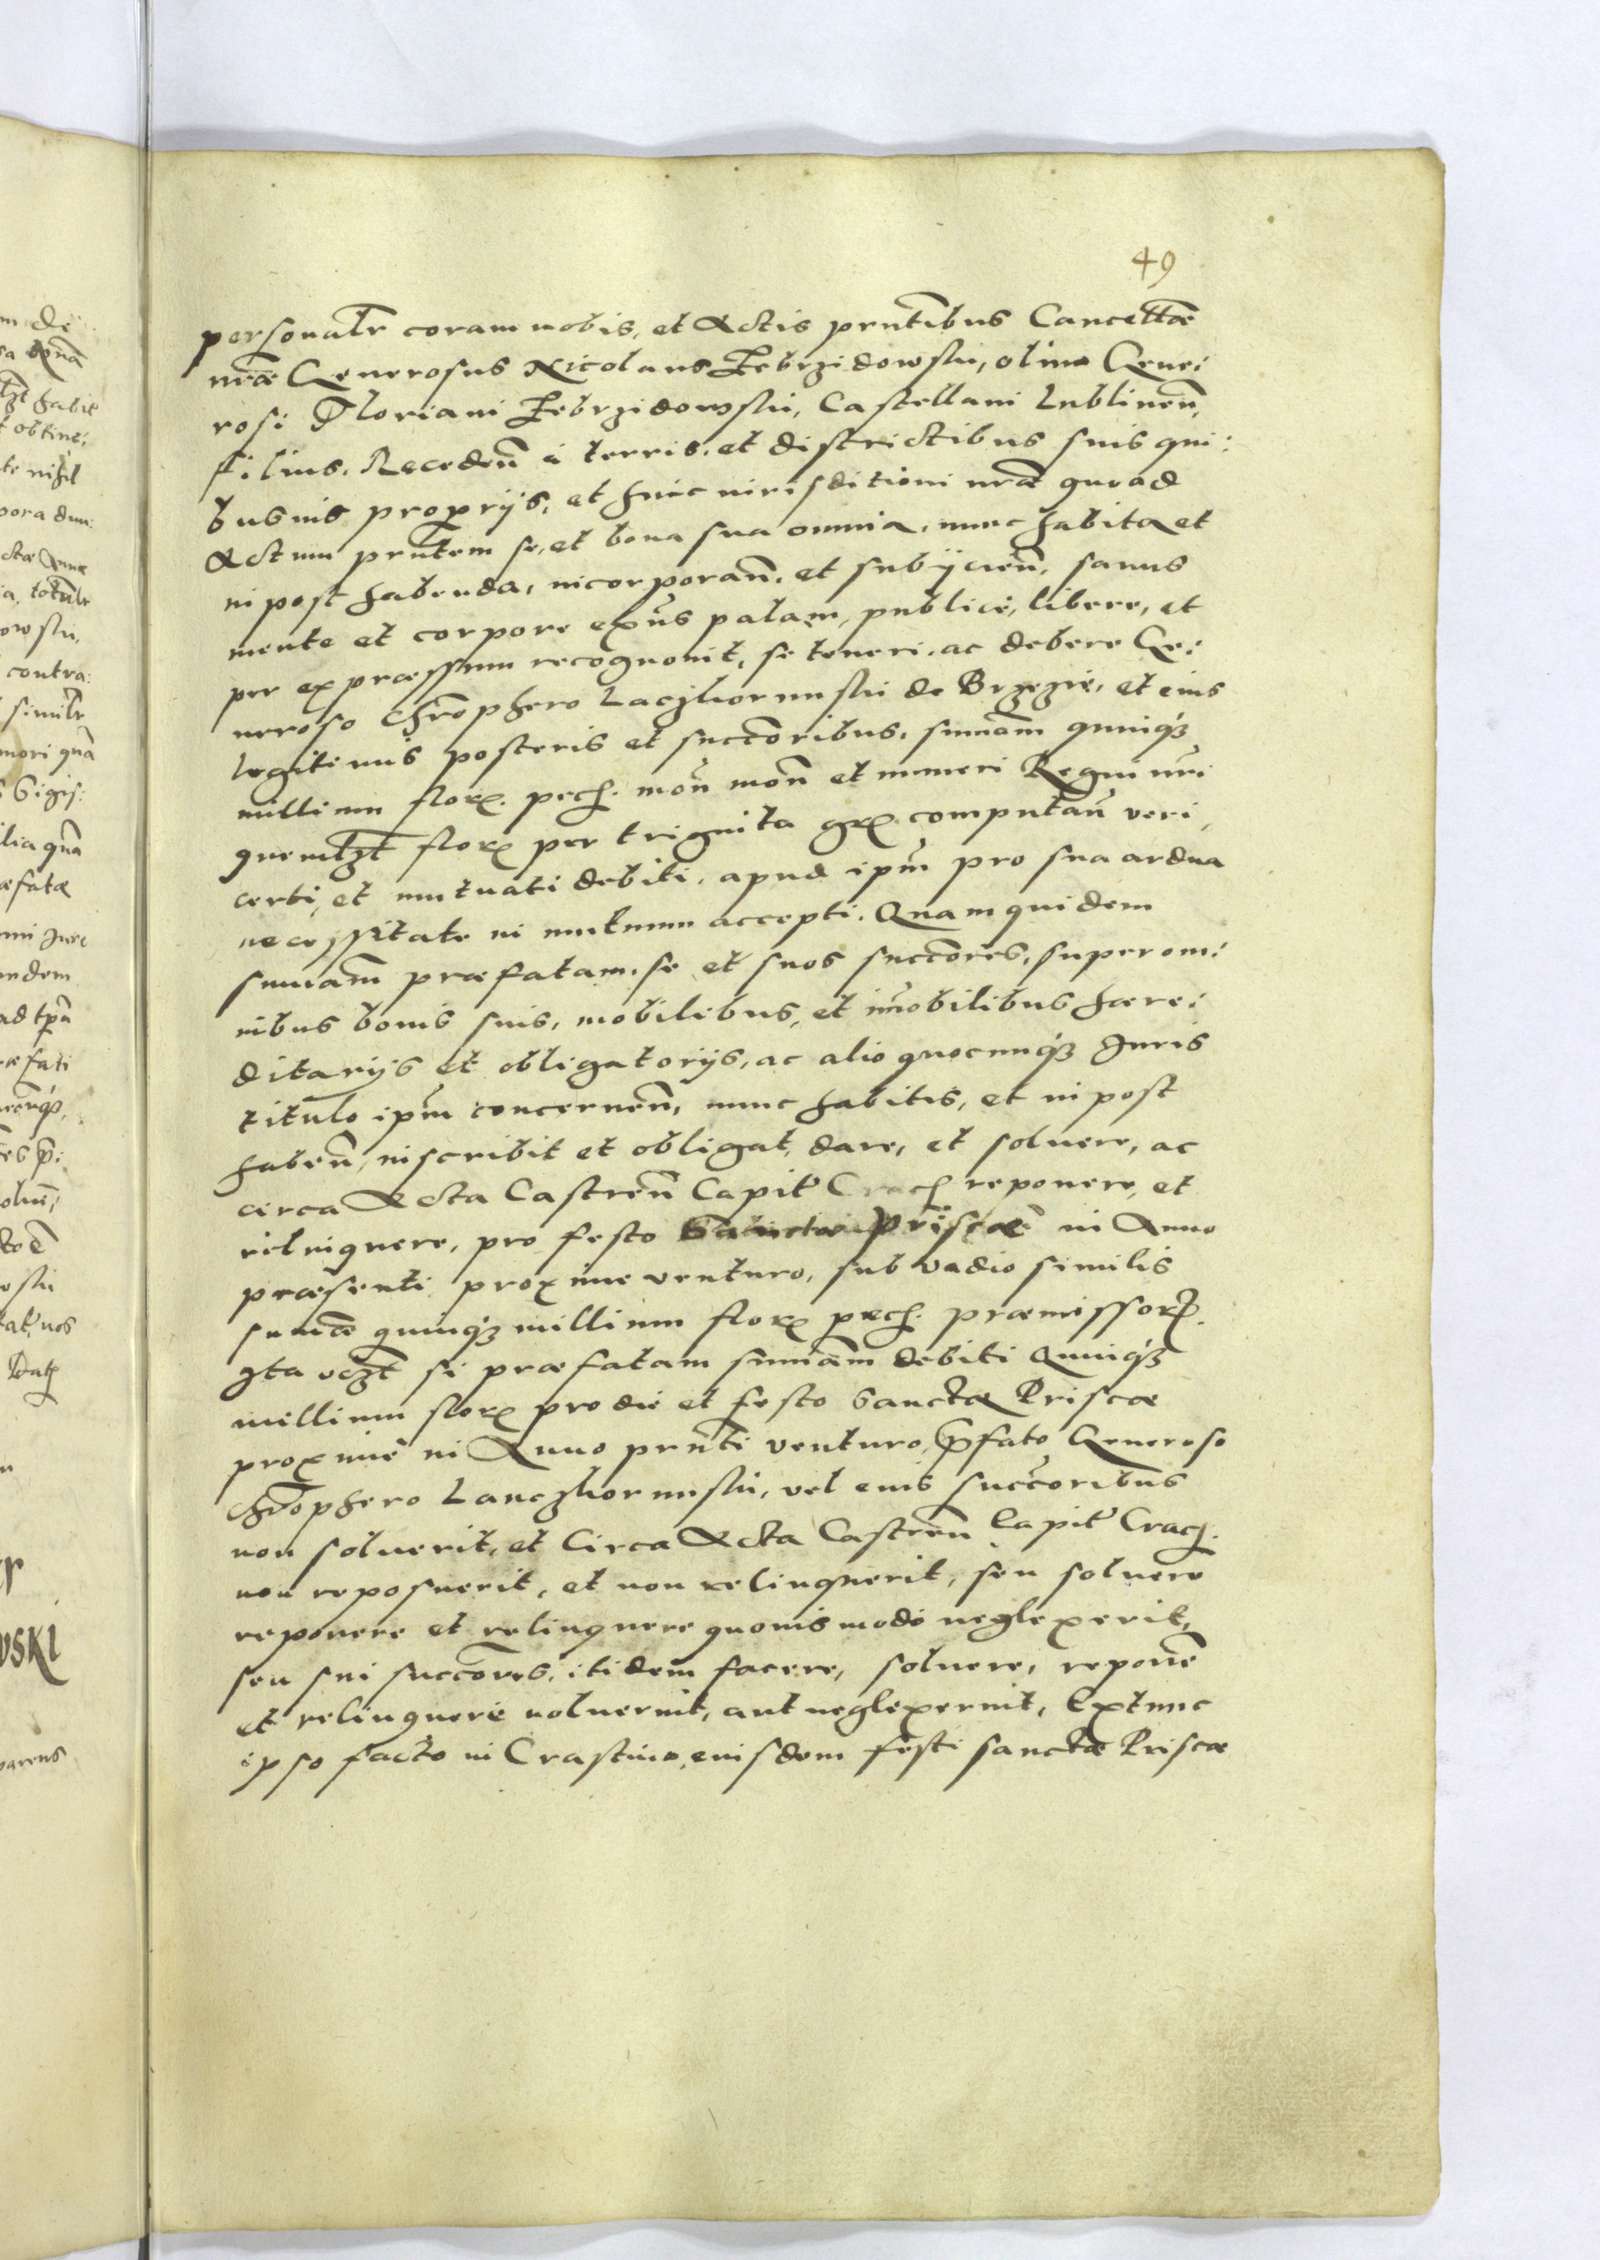 49
personałr coram nobis, et Actis prñtibus Cancełłæ
nr̃æ Generosus Nicolaus Zebrzidowski, olim Gene:
rosi Floriani Zebrzidowski, Castellani Lublineñ,
filius. Recedeñ à terris, et districtibus suis qui:
busuis proprijs, et huic iurisditioni nr̃æ quoad
Actum prñtem se, et bona sua omnia, nunc habita et
in post habenda, incorporañ. et subijcień, sanus
mente et corpore exñs palam, publicè, libere, et
per expræssum recognouit, se teneri, ac debere Ge:
neroso Chr̃ophero Laczhorunski de Brzezie, et eius
legitimis posteris et succõribus, sum̃am quinq₃
millium flor. pech. moñ moñ et numeri Regni nr̃i
quemłzt flor per triginta gr computañ veri,
certi, et mutuati debiti, apud ipm̃ pro sua ardua
necessitate in mutuum accepti. Quam quidem
sum̃am præfatam, se et suos succõres, super om:
nibus bonis suis, mobilibus, et im̃obilibus hære:
ditarijs et obligatorijs, ac alio quocunq₃ Iuris
titulo ipm̃ concerneñ, nunc habitis, et in post
habeñ, inscribit et obligat, dare, et soluere, ac
circa Acta Castreñ Capit Crach reponere, et
relinquere, pro festo Sanctæ Priscæ in Anno
præsenti proxime venturo, sub vadio similis
sum̃æ quinq₃ millium flor pech. præmissor.
Ita vczt si præfatam sum̃am debiti Quinq₃
millium flor pro die et festo Sanctæ Priscæ
proximè in Anno prñti venturo, p̃fato Generoso
Chr̃ophero Lanczhorunski, vel eius succõribus
non soluerit, et Circa Acta Castreñ Capit Crach.
non reposuerit, et non relinquerit, seu soluere
reponere et relinquere quouis modo neglexerit,
seu sui succõres, itidem facere, soluere, reponẽ
et relinquere noluerint, aut neglexerint, Extunc
ipso facto in Crastino, eiusdem festi sanctæ Priscæ